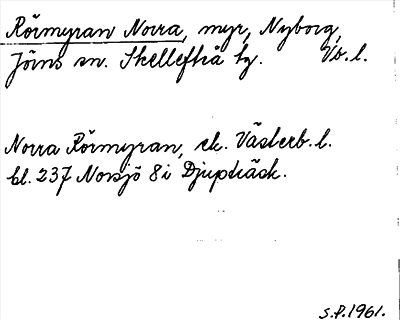 Rörmyran Norra, myr, Nyborg,
Jörns sn. Skellefteå tg. Vb. l.
Norra Rörmyran, ek. Västerb. l.
bl. 237 Norsjö 8i Djupträsk.
S.P. 1961.